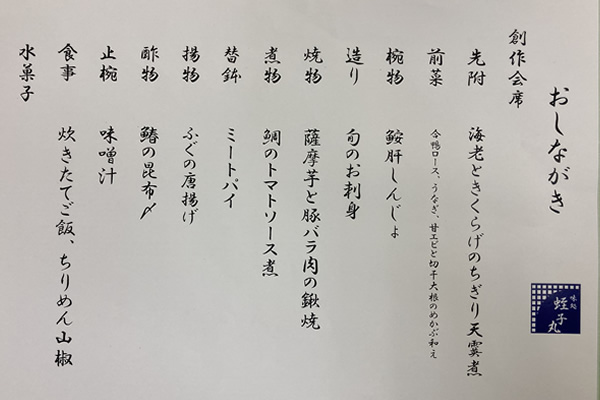 おしながき
創作会席
先附　海老ときくらげのちぎり天霙煮
前菜　合鴨ロース、うなぎ、甘エビと切干大根のめかぶ和え
椀物　鮟肝しんじょ
造り　旬のお刺身
焼物　薩摩芋と豚バラ肉の鍬焼
煮物　鯛のトマトソース煮
替鉢　ミートパイ
揚物　ふぐの唐揚げ
酢物　鰆の昆布〆
止椀　味噌汁
食事　炊きたてご飯、ちりめん山椒
水菓子
味処
蛭子丸